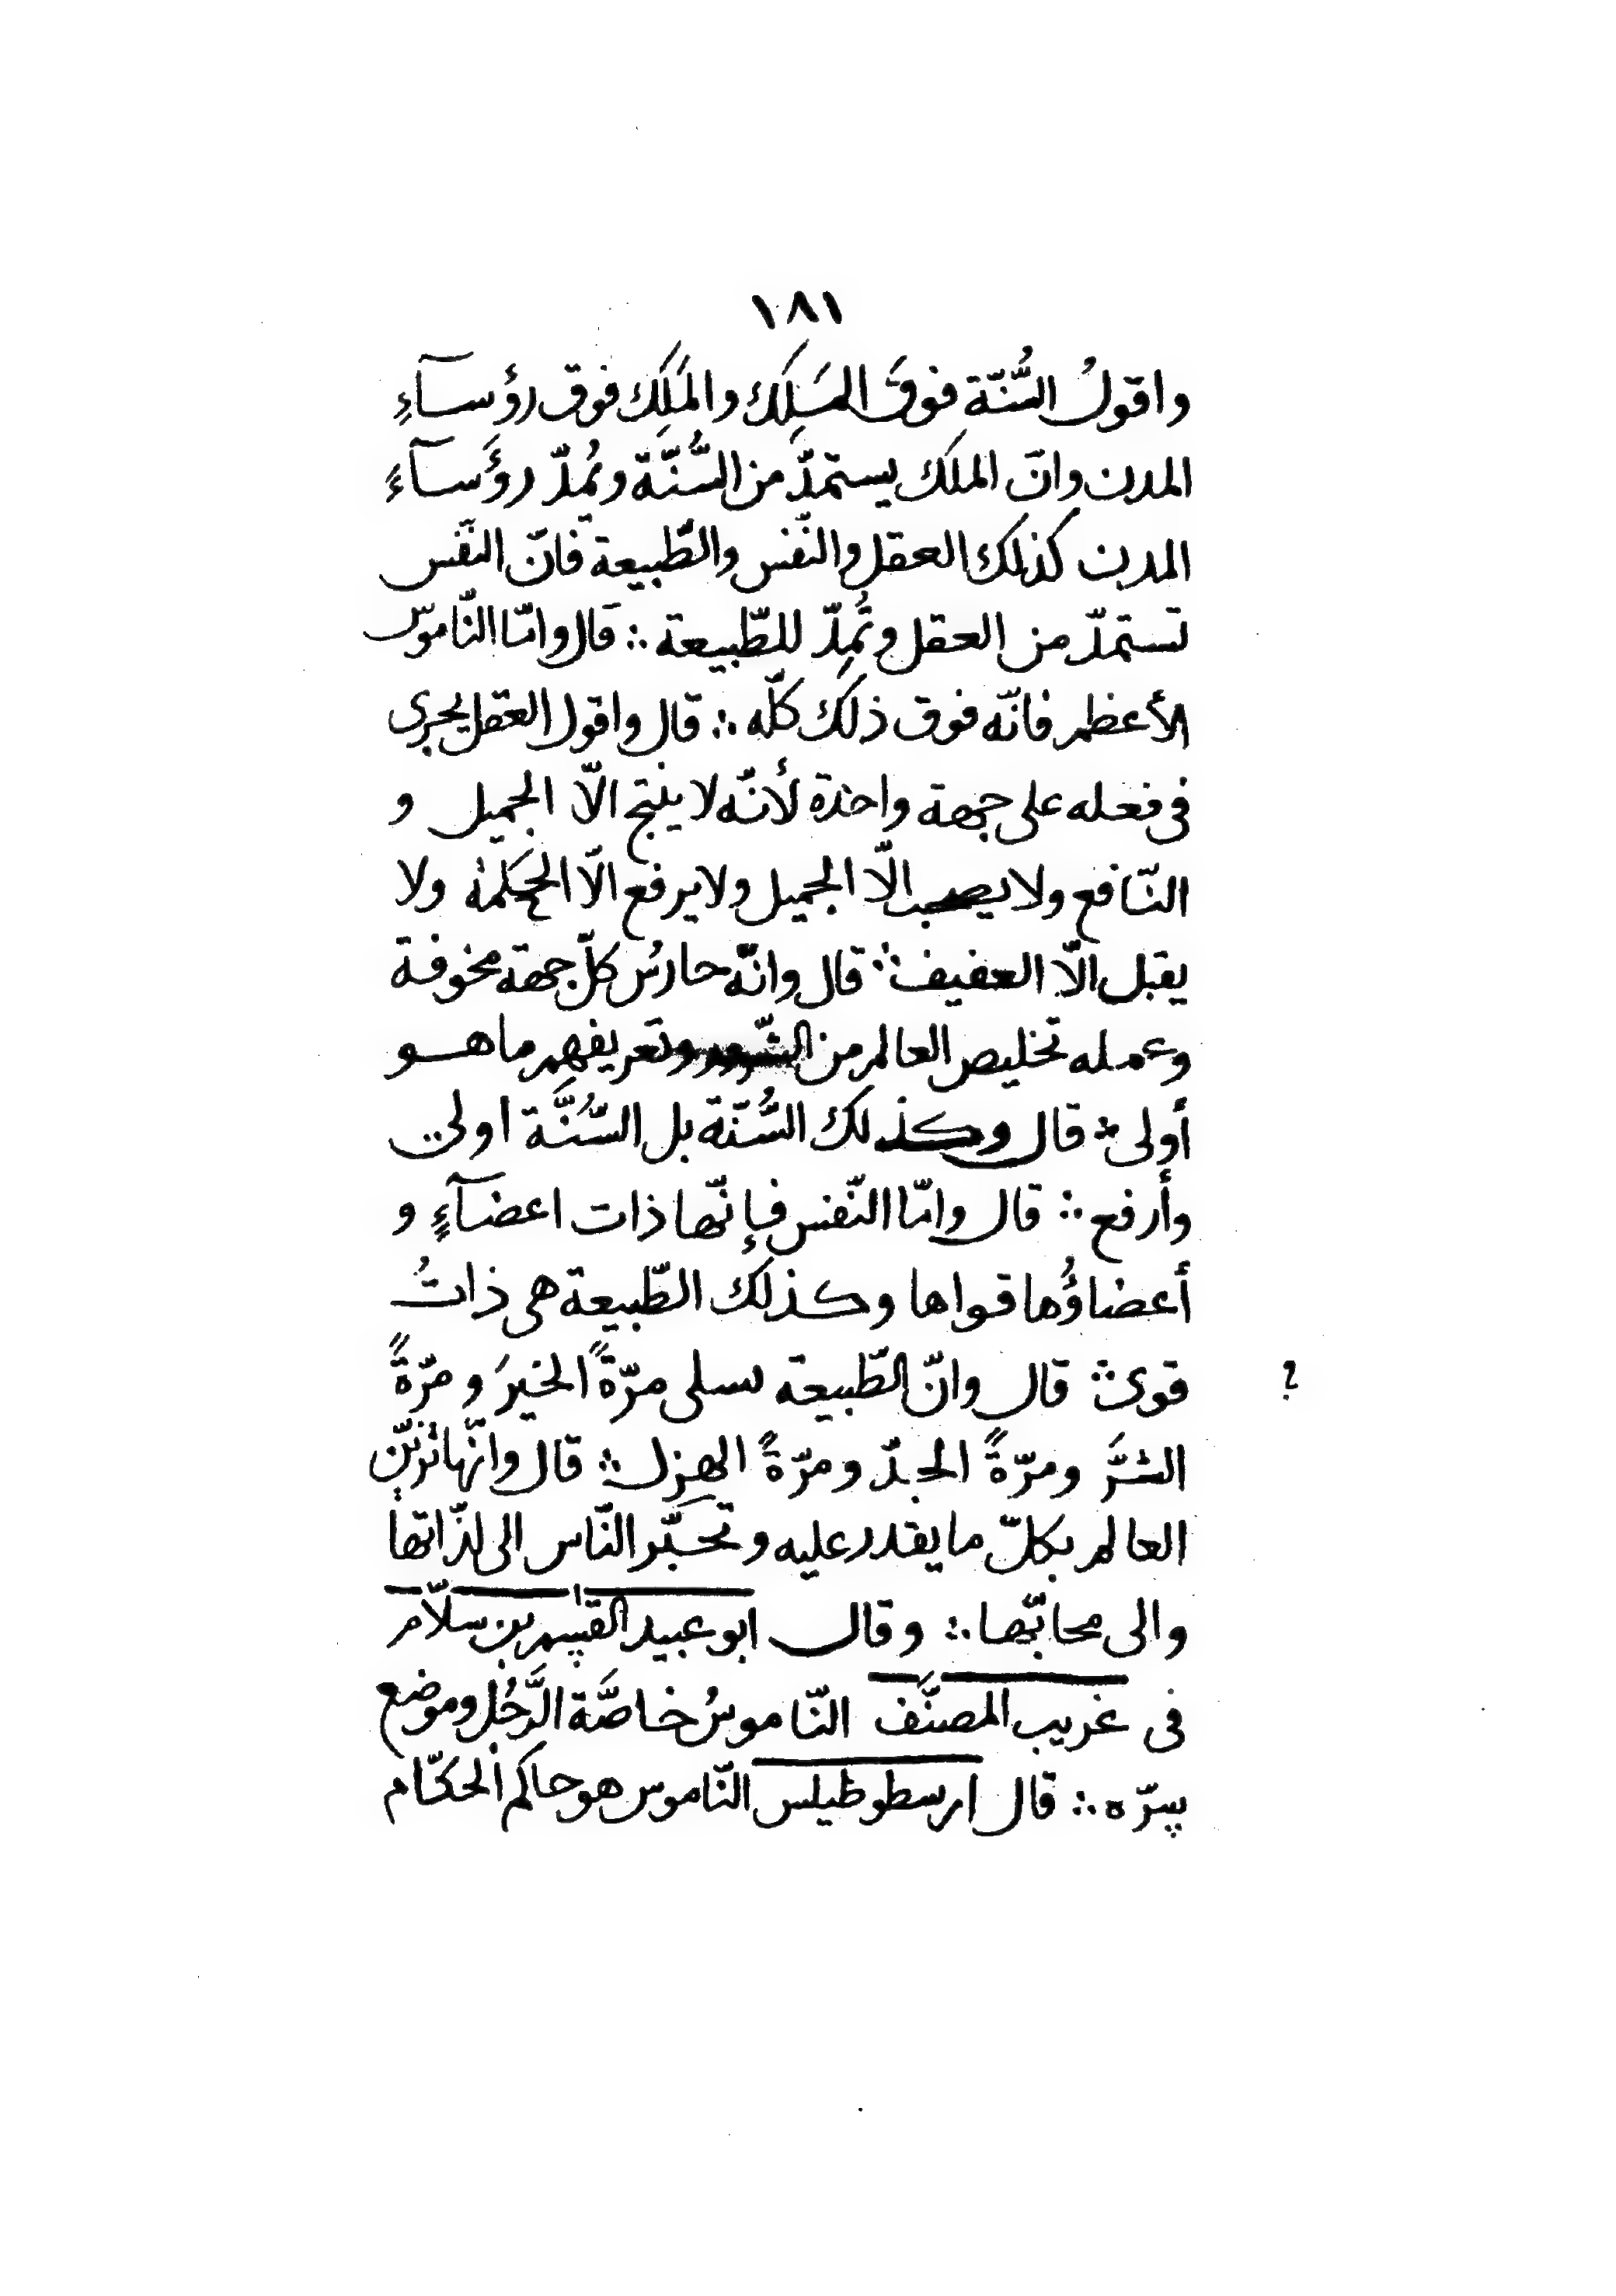 ١٨١
واقولُ السُّنّة فوقَ المَلِك والمَلِك فوق رؤسآءِ
المدن وانّ الملَك يستمدّ من السُّنّة ويُمِدّ رؤَسآءَ
المدن كذلك العقل والنّفس والطّبيعة فانّ النّفس
تستمدّ من العقل وتُمِدّ للطّبيعة ∴ قال وامّا النّاموس
الأعظم فانّه فوق ذلك كلّه ∴ قال واقول العقل يجرى
فى فعله على جهة واحدة لأنّه لا ينتج الّا الجميل و
النّافع ولا يصحب الّا الجميل ولا يرفع الّا الحكمة ولا
يقبل الّا العفيف ∴ قال وانّه حارسُ كلّ جهة مخوفة
وعمله تخليص العالم من الشّرور وتعريفهم ما هو
أولى ∴ قال وكذلك السُّنّة بل السُّنَّة اولى
وأرفع ∴ قال وامّا النّفس فإنّها ذات اعضآءٍ و
أعضاؤُها قواها وكذلك الطّبيعة هى ذاتُ
قوى ∴ قال وانّ الطّبيعة سلى مرّةً الخيرَ ومرّةً
؟
الشرَّ ومرّةً الجدّ ومرّةً الهزل ∴ قال وانّها تزيّن
العالم بكلّ ما يقدر عليه وتحبّر النّاس الى لذّاتها
والى محابّها ∴ وقال ابو عبيد القسم بن سلّام
فى غريب المصنَّف النّاموسُ خاصَّة الرَّجُل وموضع
سرّه ∴ قال ارسطوطيلس النّاموس هو حاكم الحكّام